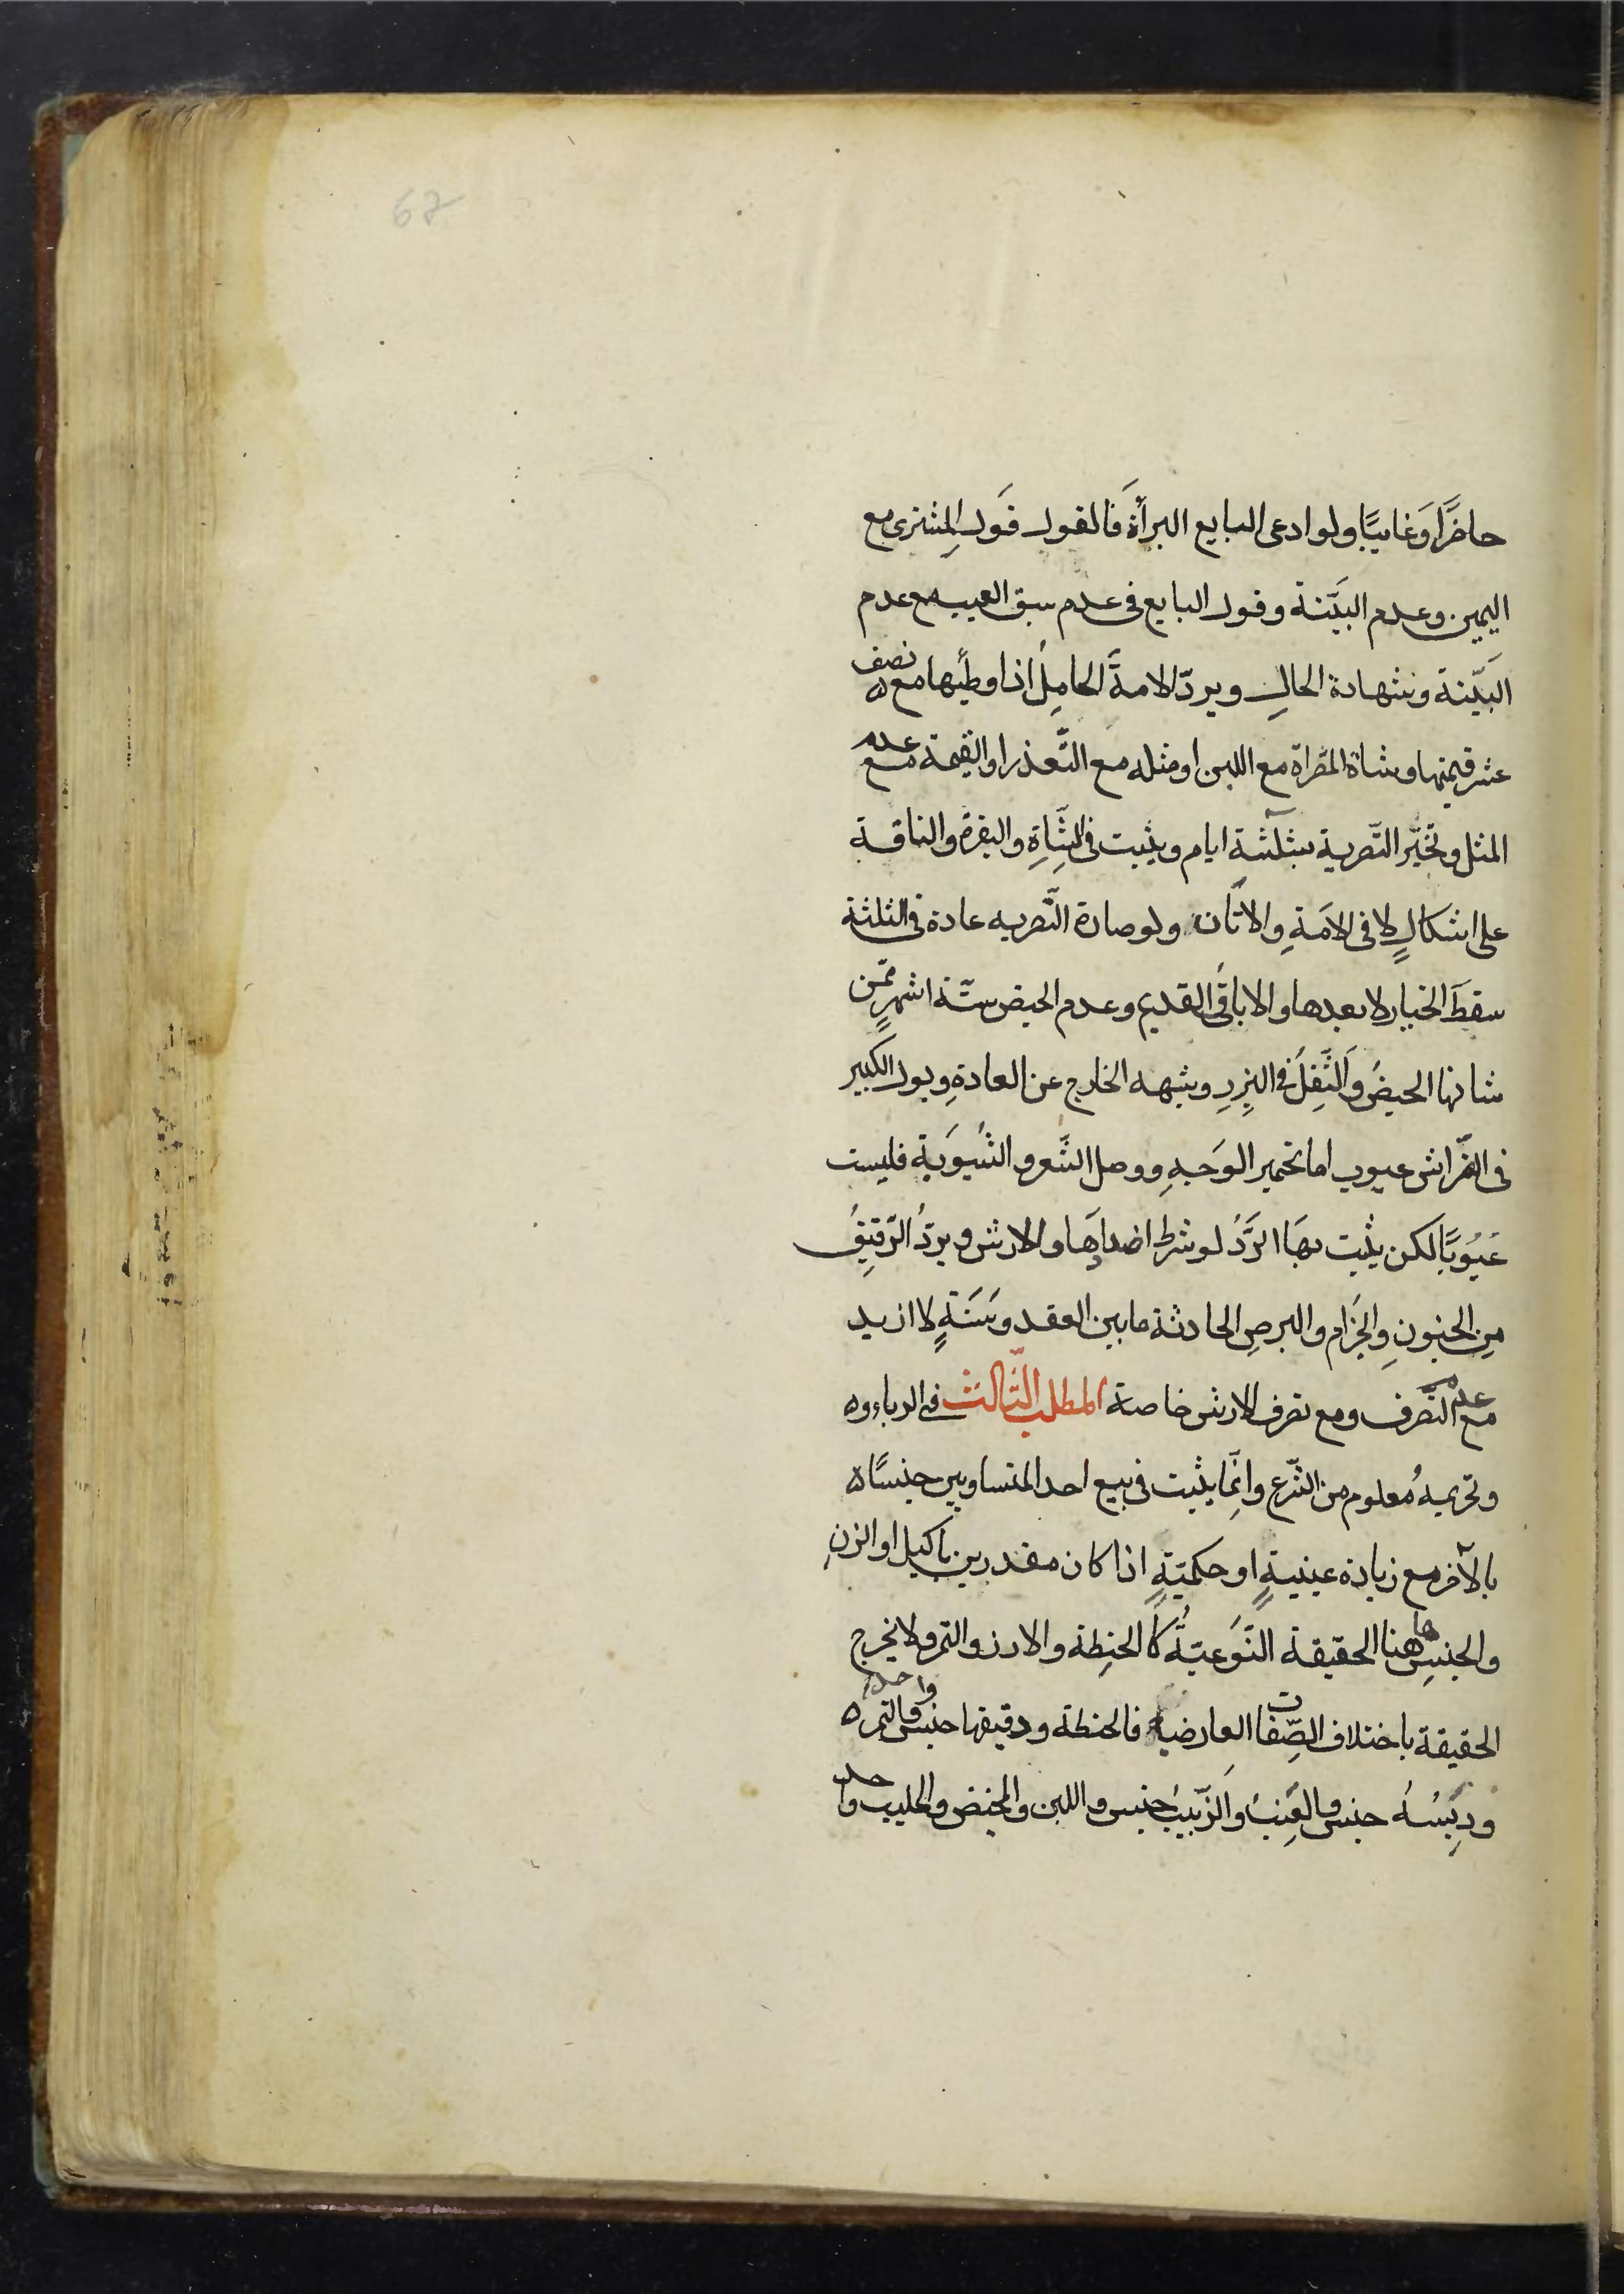 67
حاضَرًا وَغايبًا ولو ادعى البايع البرأة فَالقول قَول المِشترى مع
اليمين وعدم البيّنة وقول البايع فى عدم سبق العيب مع عدم
البَيّنة وشهادة الحالِ ويردّ الامةَ الحامِلُ اذا وطيها مع نصف
عشر قيمتها وشاة المصّراة مع اللبن او مثله مع التَّعذر او القيمة مع عدم
المثل وتخيّر التّصرية بثلثة ايام ويثبت فى الشَّاةِ والبقرة والناقة
على اشكالٍ لا فى الامَةِ والاتان ولو صارة التَّصريه عادة فى الثلثة
سقطَ الخيار لا بعدها والاباقُ القديم وعدم الحيض ستّة اشهرٍ ممّن
شانها الحيضُ والَثِّفِلُ فى البِزرِ وشبهه الخارج عن العادةِ وبول الكَبير
فى الفّراش عيوب اما تحمير الوَجهِ ووصل الشَّعر والثّيوَبة فليست
عَيُوبًا لكن يثبت بهَا الرَّدُ لو شرط اضدادَها ولا ارش ويردُ الرّقيِقُ
مِن الجنونِ والجَزام والبرصِ الحادثة ما بين العقد وسَنَةٍ لا ازيد
مع عدم التّصرف ومع تصرف الارش خاصة المطلب الثّالث فى الرباء وه
وتحريمهُ معلوم من الشّرع وانِّما يثبت فى بيع احد المتساويين جنسًا ه
بالآخر مع زيادة عينيةٍ او حكميّةٍ اذا كان مقدرين باكيل او الزنِ
والجنسِ ها هنا الحقيقة النَّوَعيّةُ كا الحنِطة والارز والتمر ولا يخرج
الحقيقة باختلاف الصِّفات العارضية فالحنطة ودقيقها جنس واحد والتمر ه
ودِبَسُهُ جنس والعِنبُ والزّبيبُ جنيس واللبن والمخيض والحليب واحد